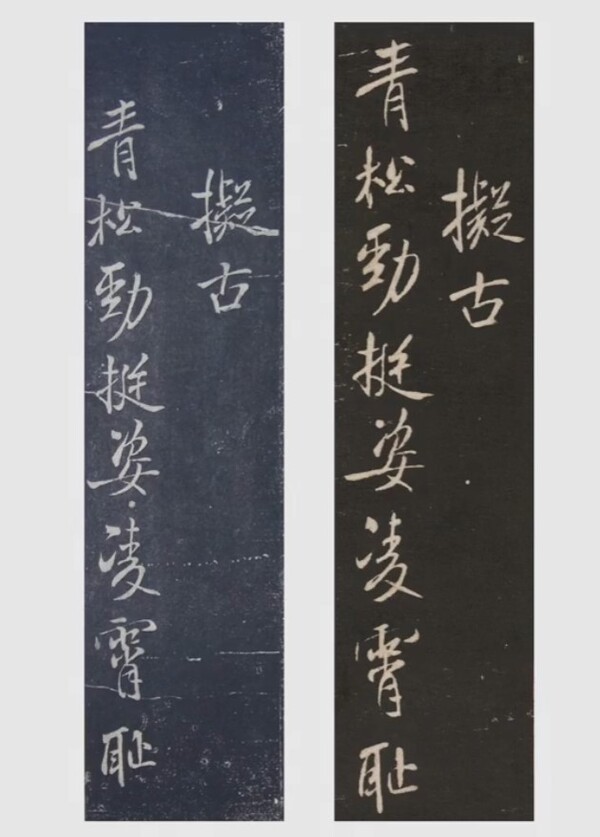 擬古
青松勁挺姿凌霄恥
擬古
青松勁挺姿凌霄耻